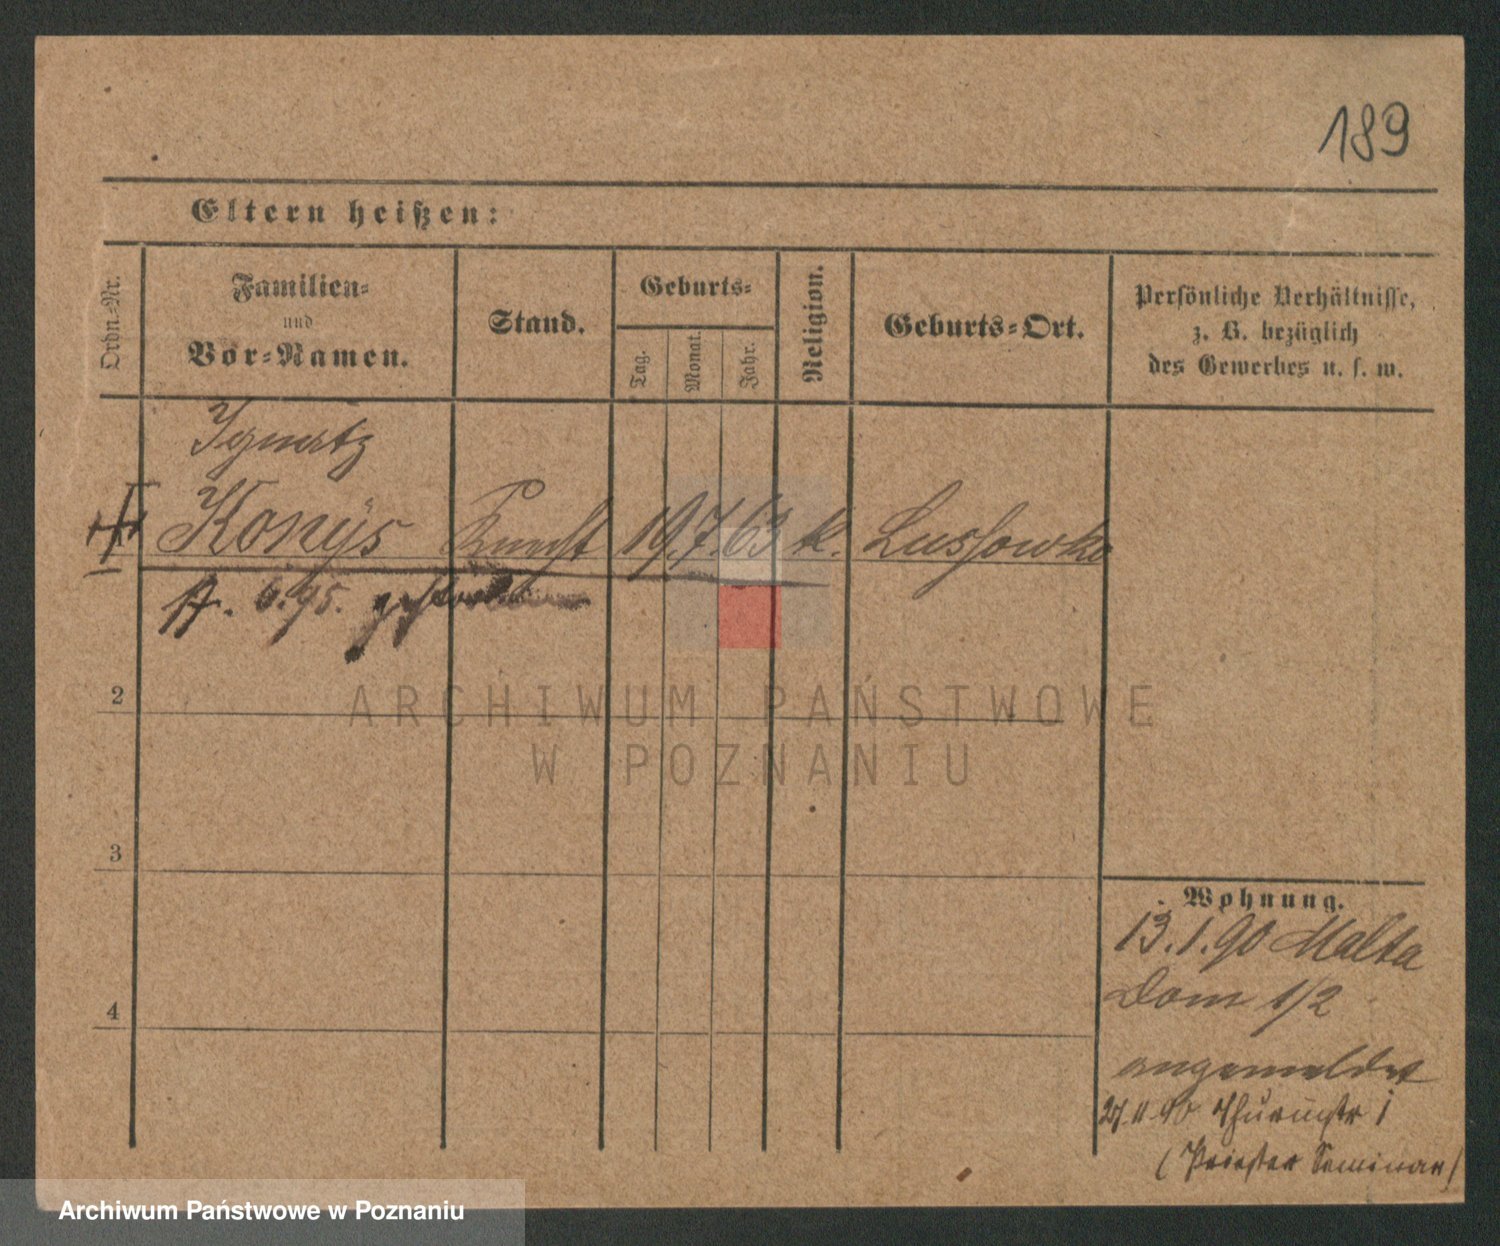 189
Eltern heißen:
Ordn.-Nr.
Familien-
und
Vor-Namen.
Stand.
Geburts-
Tag.
Monat.
Jahr.
Religion.
Geburts-Ort.
Persönliche Verhältnisse,
z. B. bezüglich
des Gewerbes u. s. w.
Ignatz
Konÿs Knecht 19. 7. 63 k. Lussowko
6. 95. gestorben
2
ARCHIWUM PAŃSTWOWE
W POZNANIU
3
4
Wohnung.
13. 1. 90 Malta
Dom 1/2
angemeldet
27. 11. 90 Thurmstr 1
(Priester Seminar)
Archiwum Państwowe w Poznaniu